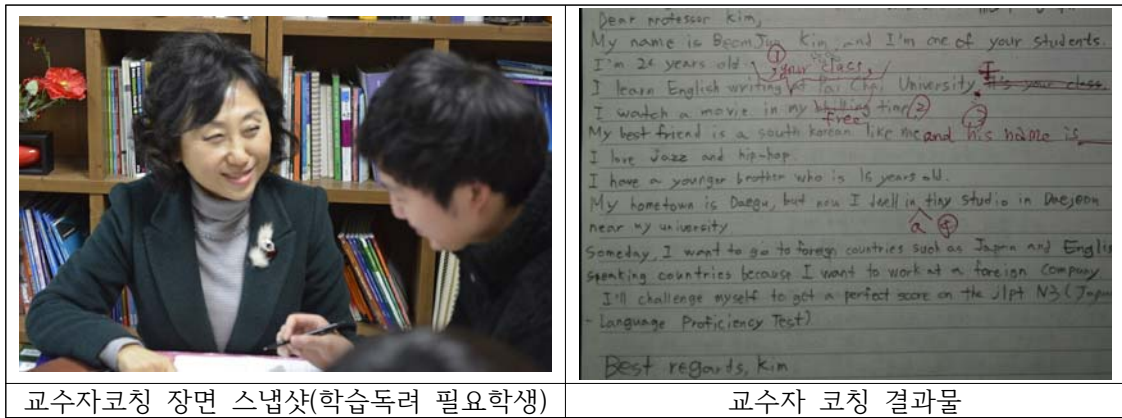 Dear professor Kim,
My name is BeomJun Kim, and I'm one of your students.
I'm 26 years old.
① your class,
I learn English writing at Pai Chai University It's your class.
I watch a movie in my killing time ②
free ③
My best friend is a south korean like me and his name is
I love jazz and hip-hop.
I have a younger brother who is 16 years old.
My hometown is Daegu, but now I dwell in tiny studio in Daejeon
near my university
a ④
Someday, I want to go to foreign countries such as Japan and Englis
speaking countries because I want to work at a foreign company
I'll challenge myself to get a perfect score on the jlpt N3 (Japan
- Language Proficiency Test)
Best regards, Kim
교수자코칭 장면 스냅샷(학습독려 필요학생)
교수자 코칭 결과물